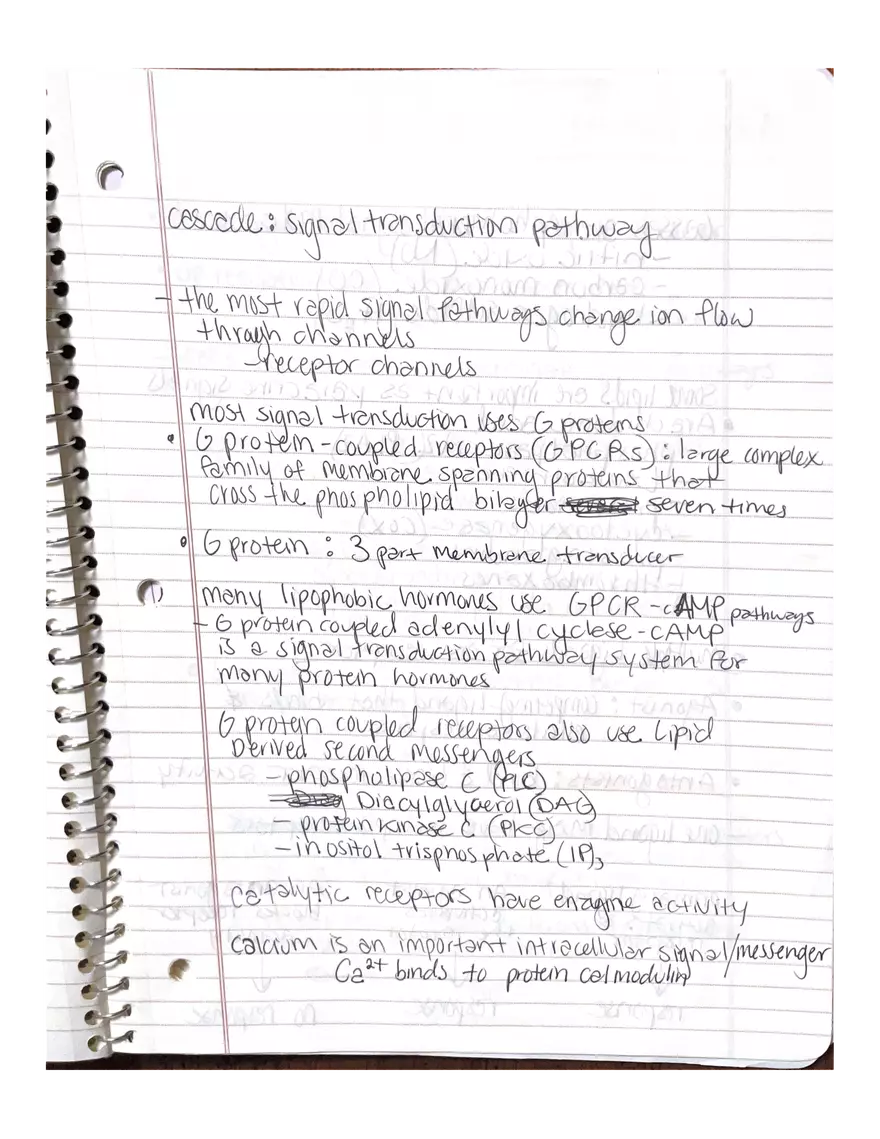 cascade: signal transduction pathway
- the most rapid signal pathways change ion flow
through channels
-receptor channels
most signal transduction uses G proteins
• G protein-coupled receptors (GPCRs): large complex
family of membrane spanning proteins that
cross the phospholipid bilayer seven times
• G protein: 3 part membrane transducer
many lipophobic hormones use GPCR-cAMP pathways
- G protein coupled adenylyl cyclase-cAMP
is a signal transduction pathway system for
many protein hormones
G protein coupled receptors also use Lipid
Derived second messengers
- phospholipase C (PLC)
Diacylglycerol (DAG)
- protein kinase C (PKC)
- inositol trisphosphate (IP)3
Catalytic receptors have enzyme activity
calcium is an important intracellular signal/messenger
Ca2+ binds to protein calmodulin